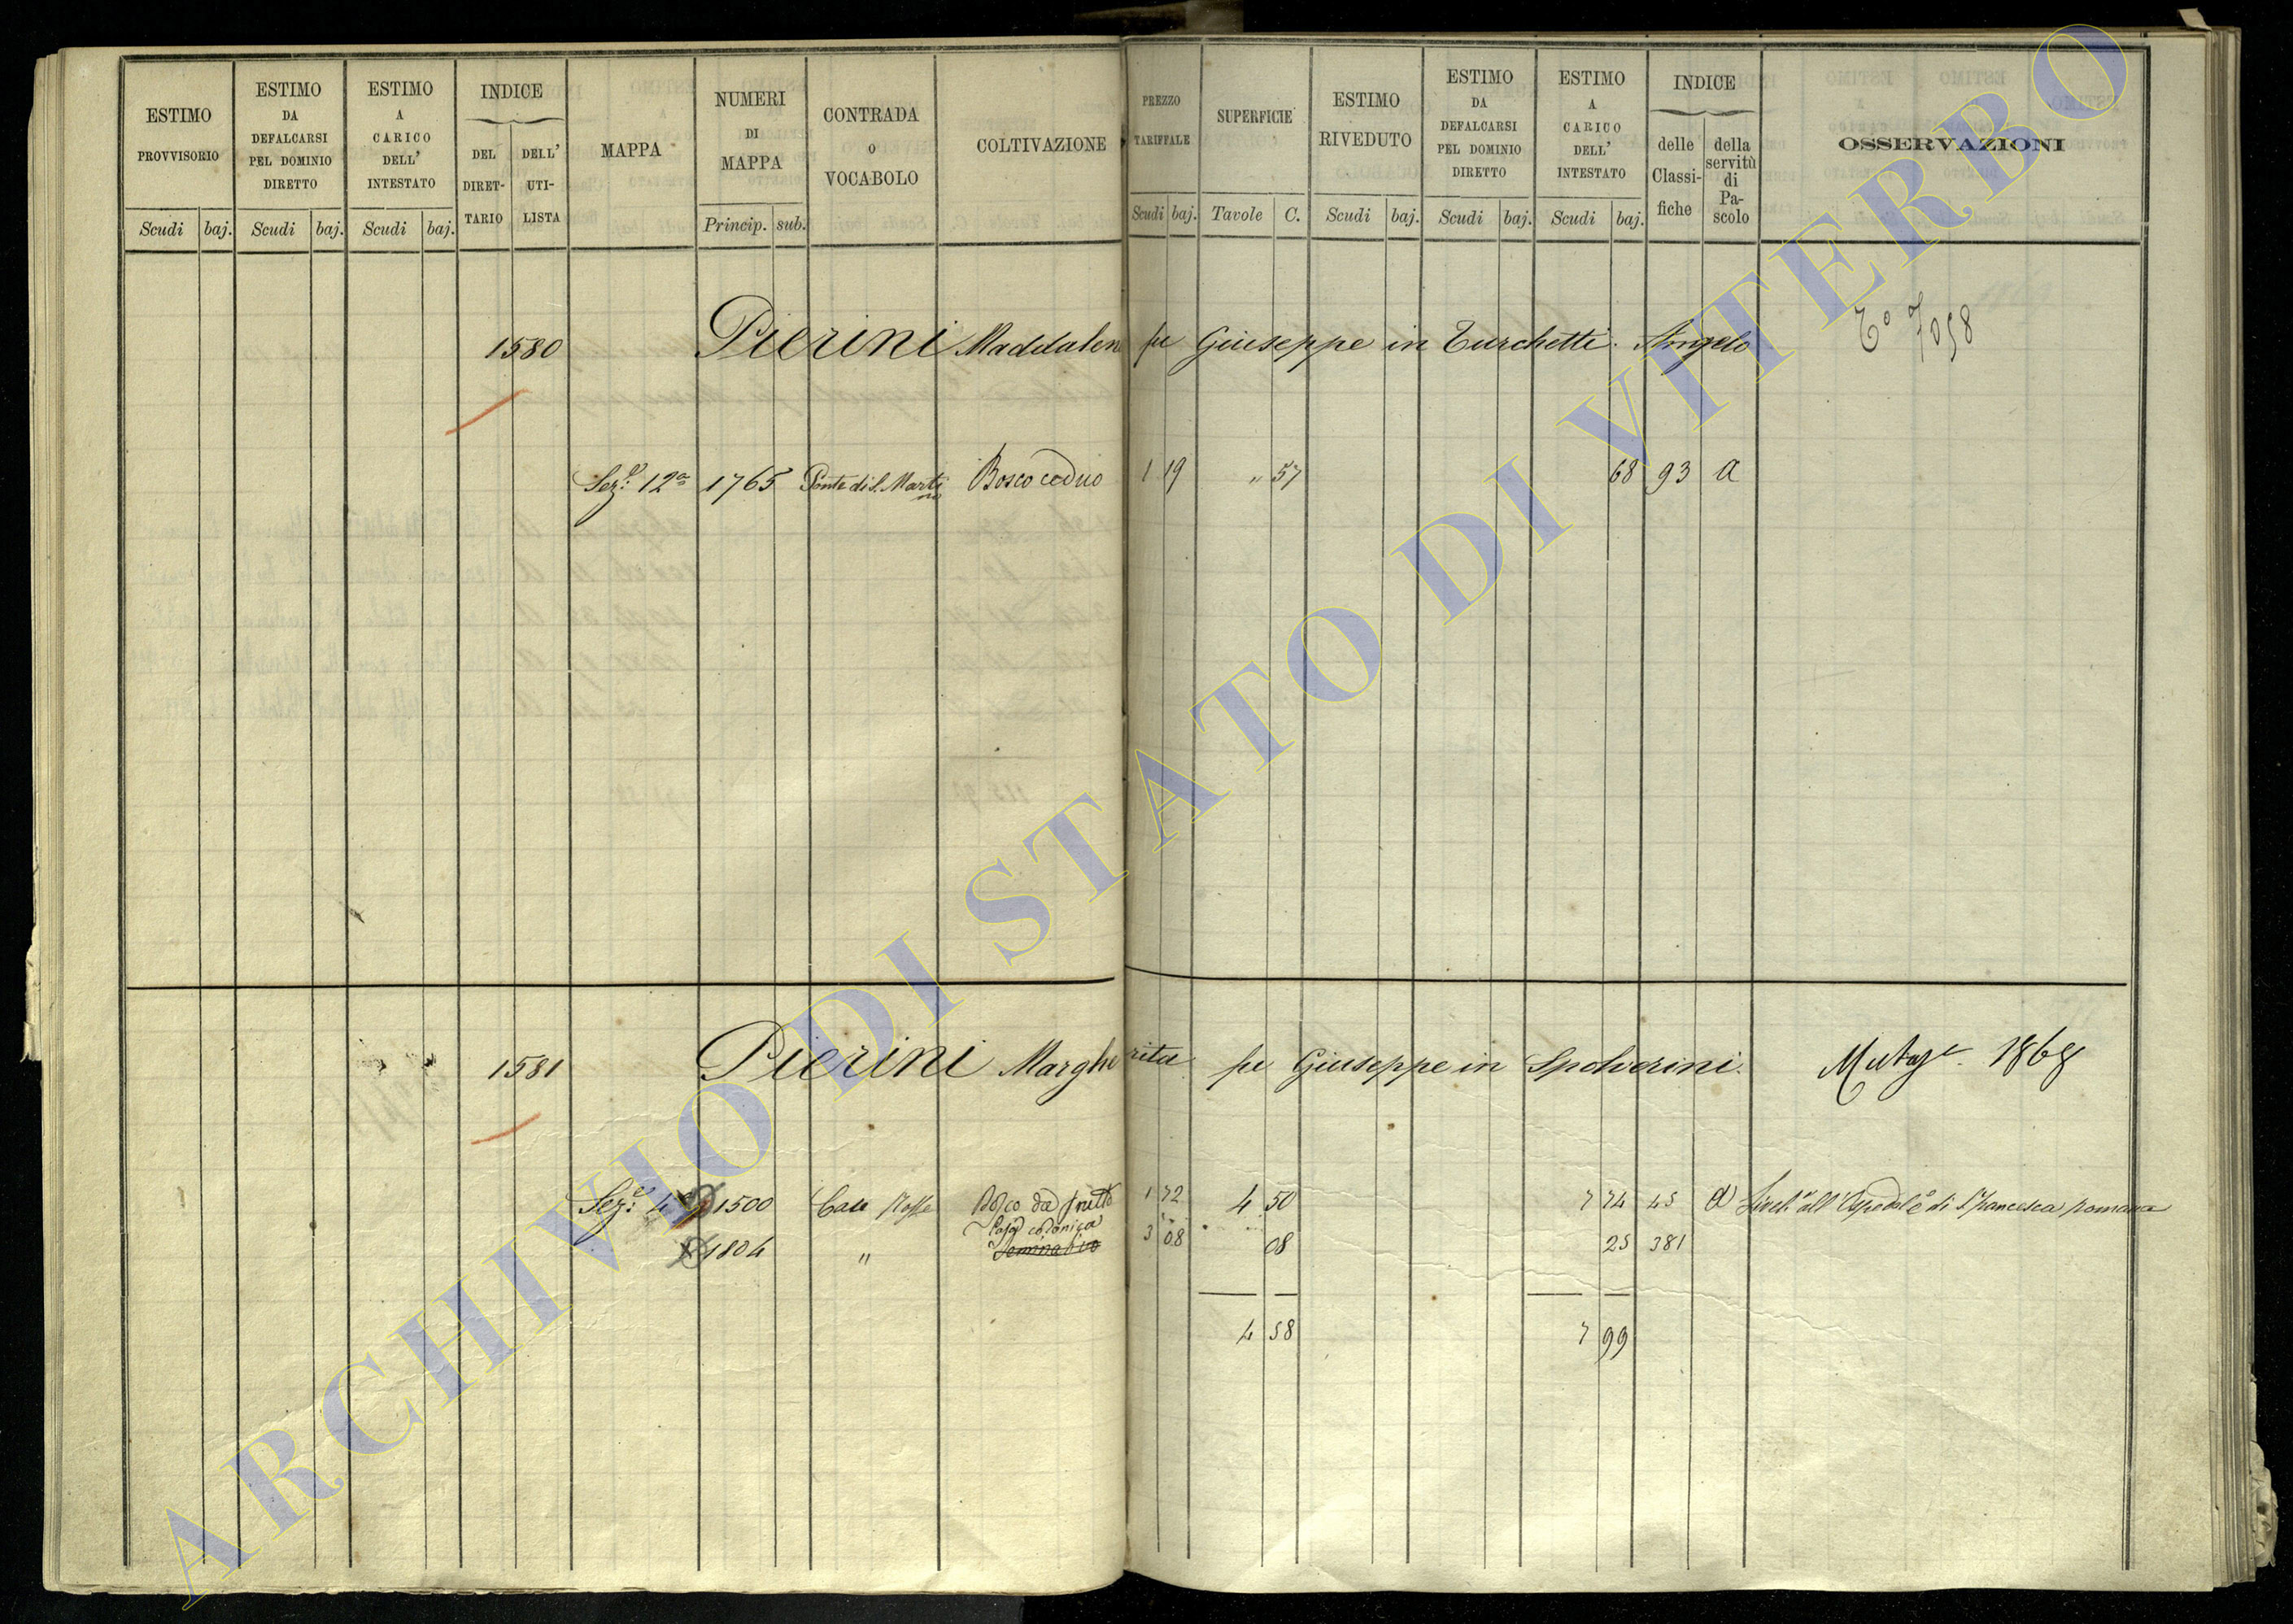 ESTIMO PROVVISORIO
Scudi baj.
ESTIMO DA DEFALCARSI PEL DOMINIO DIRETTO
Scudi baj.
ESTIMO A CARICO DELL' INTESTATO
Scudi baj.
INDICE
DEL DIRET-
TARIO
DELL' UTI-
LISTA
MAPPA
NUMERI DI MAPPA
Princip. sub.
CONTRADA O VOCABOLO
COLTIVAZIONE
PREZZO TARIFFALE
Scudi baj.
SUPERFICIE
Tavole C.
ESTIMO RIVEDUTO
Scudi baj.
ESTIMO DA DEFALCARSI PEL DOMINIO DIRETTO
Scudi baj.
ESTIMO A CARICO DELL' INTESTATO
Scudi baj.
INDICE
delle Classi-
fiche
della servitù di Pa-
scolo
OSSERVAZIONI
1580 Pierini Maddalen fu Giuseppe in Turchetti Angelo
7058
Sez.e 12a 1765 Ponte di S. Marti
no
Bosco ceduo 1 19 " 57 68 93 a
1581 Pierini Margherita fu Giuseppe in Spolverini. 1868
Sez.e 4 1500 Case Rosse Bosco da frutto 1 72 4 50 7 74 45 a all' Ospedale di S. Francesca romana
Casa colonica
1804 " Seminativo 3 08 08 25 381
4 58 7 99
ARCHIVIO DI STATO DI VITERBO